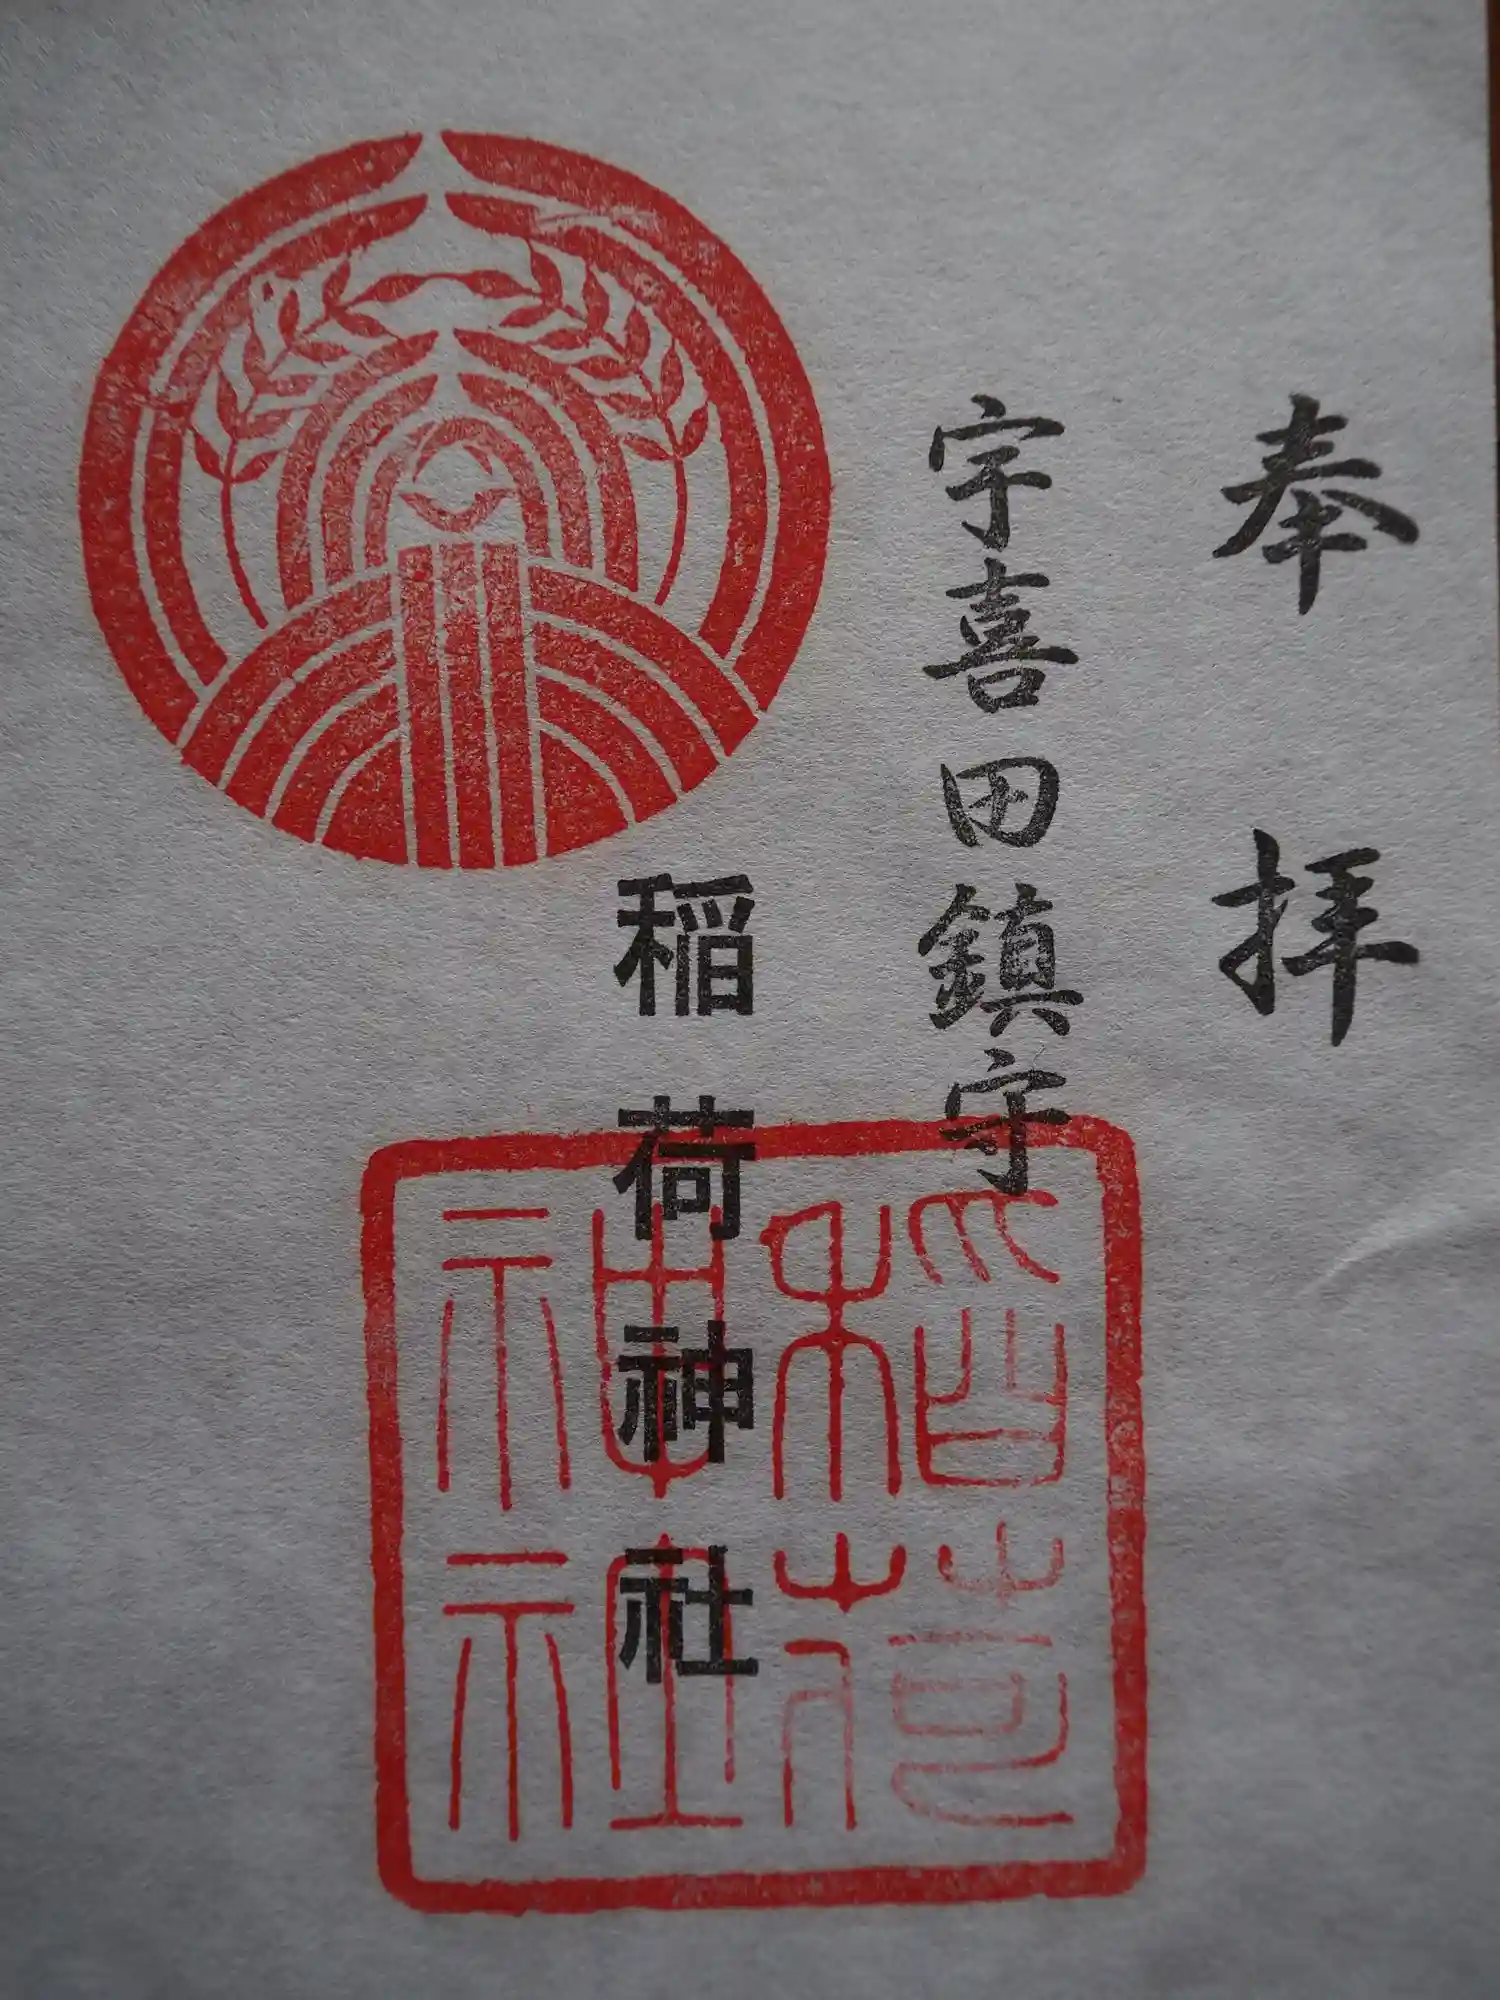 奉拝
宇喜田鎮守
稲荷神社
稻荷
神社